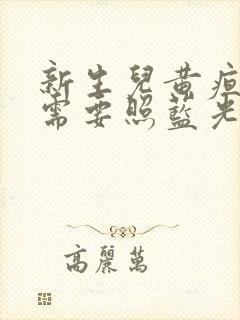 新生兒黃疸
需要照藍光
高麗萬